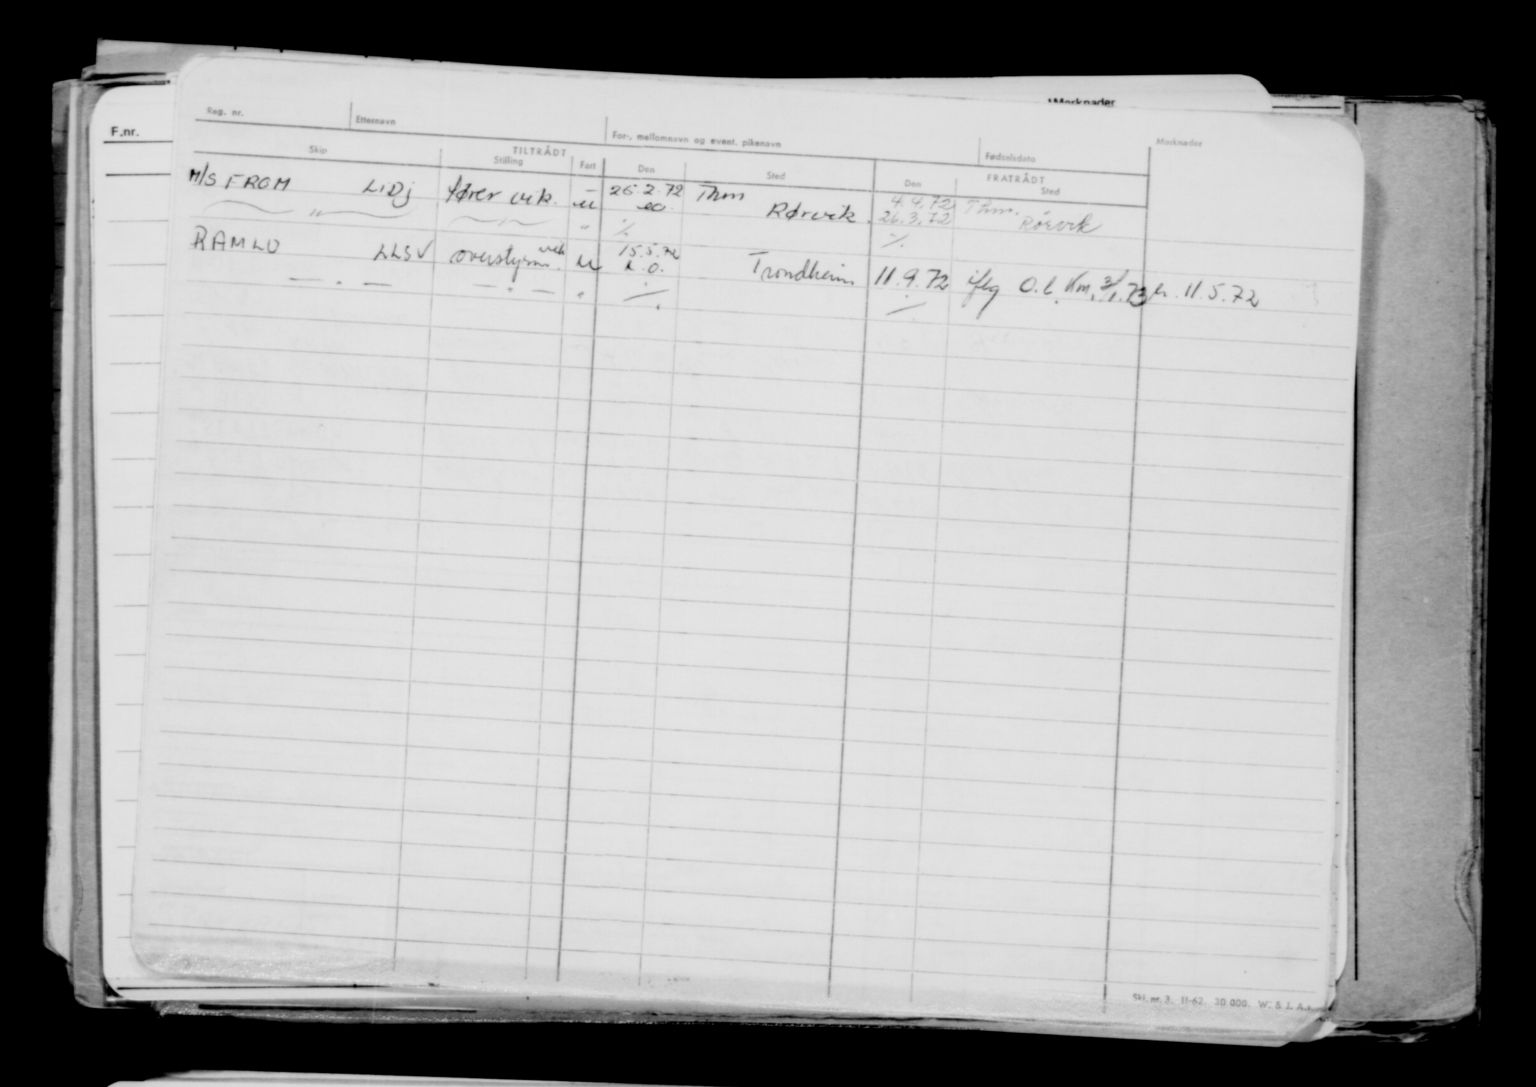 Merknader
F.nr.
Reg. nr. Etternavn For-, mellomnavn og event. pikenavn Fødselsdato Merknader
Skip TILTRÅDT Stilling Fart Den Sted FRATRÅDT Den Sted
M/S FROM LIDJ fører vik. — 26.2.72 Thm 4.4.72 Thm.
" u eo. Rørvik. 26.3.72 Rörvik
RAMLO LLSV overstyrm. vik u 15.5.72 Trondheim 11.9.72 iflg O.l. Km. 3/1.73 h. 11.5.72
Skj. nr. 3. 11-62. 30 000. W. & J. A.s